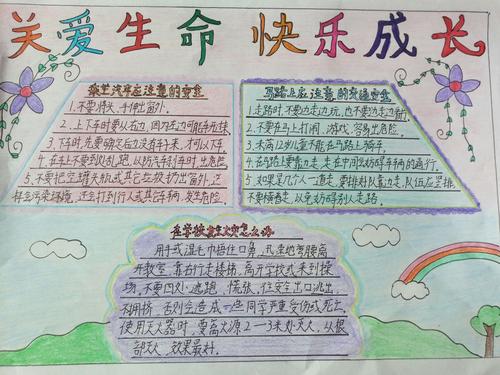 关爱生命 快乐成长
乘坐汽车应注意的安全
1.不要将头、手伸出窗外。
2.上下车时要从右边,因为左边可能车来
3.下车时先要确定右边没有车子来,才可以下车。
4.在车上不要到处乱跑,以防汽车刹车时出危险。
5.不要把空罐头瓶或其它垃圾扔出窗外,这
样会污染环境,还会打到行人或其它车辆,发生危险。
马路上应注意的交通安全
1.走路时,不要边走边玩,也不要边走边看
2.不要在马路上打闹、游戏,容易出危险。
3.未满12岁儿童不能在马路上骑车。
4.在马路上要靠边走,走在中间会妨碍车辆的通行。
5.如果是几个人一道走,要排好队靠边走,队伍应竖排,
不要横着走,以免妨碍别人走路。
在学校发生火灾怎么办
用手或湿毛巾捂住口鼻,迅速地弯腰离
开教室,靠右行走楼梯,离开学校或来到操
场,不要四处逃跑、慌张,往安全出口逃出,
不拥挤,否则会造成一些同学严重受伤或死亡。
使用灭火器时,要离火源2-3米处灭火,从根
部灭火,效果最好。